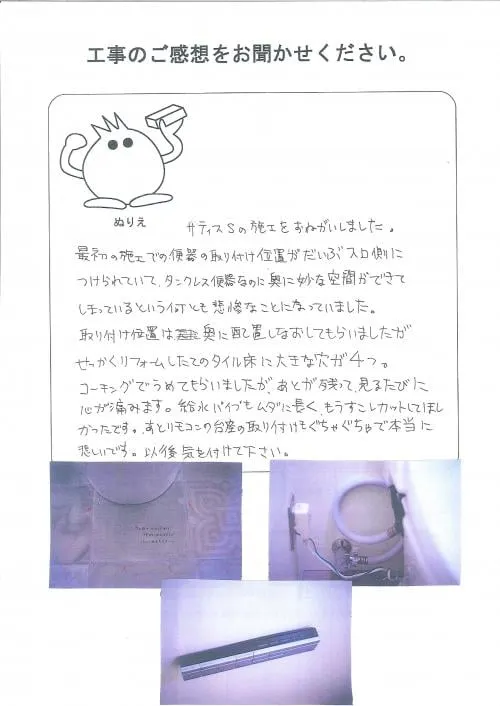 工事のご感想をお聞かせください。
ぬりえ
サティスSの施工をおねがいしました。
最初の施工での便器の取り付け位置がだいぶ入口側に
つけられていて、タンクレス便器なのに奥に妙な空間ができて
しまっているという何とも悲惨なことになっていました。
取り付け位置は奥に配置しなおしてもらいましたが
せっかくリフォームしたてのタイル床に大きな穴が4つ。
コーキングでうめてもらいましたが、あとが残って、見るたびに
心が痛みます。給水パイプもムダに長く、もうすこしカットしてほし
かったです。あとリモコンの台座の取り付けもぐちゃぐちゃで本当に
悲しいです。以後気を付けて下さい。